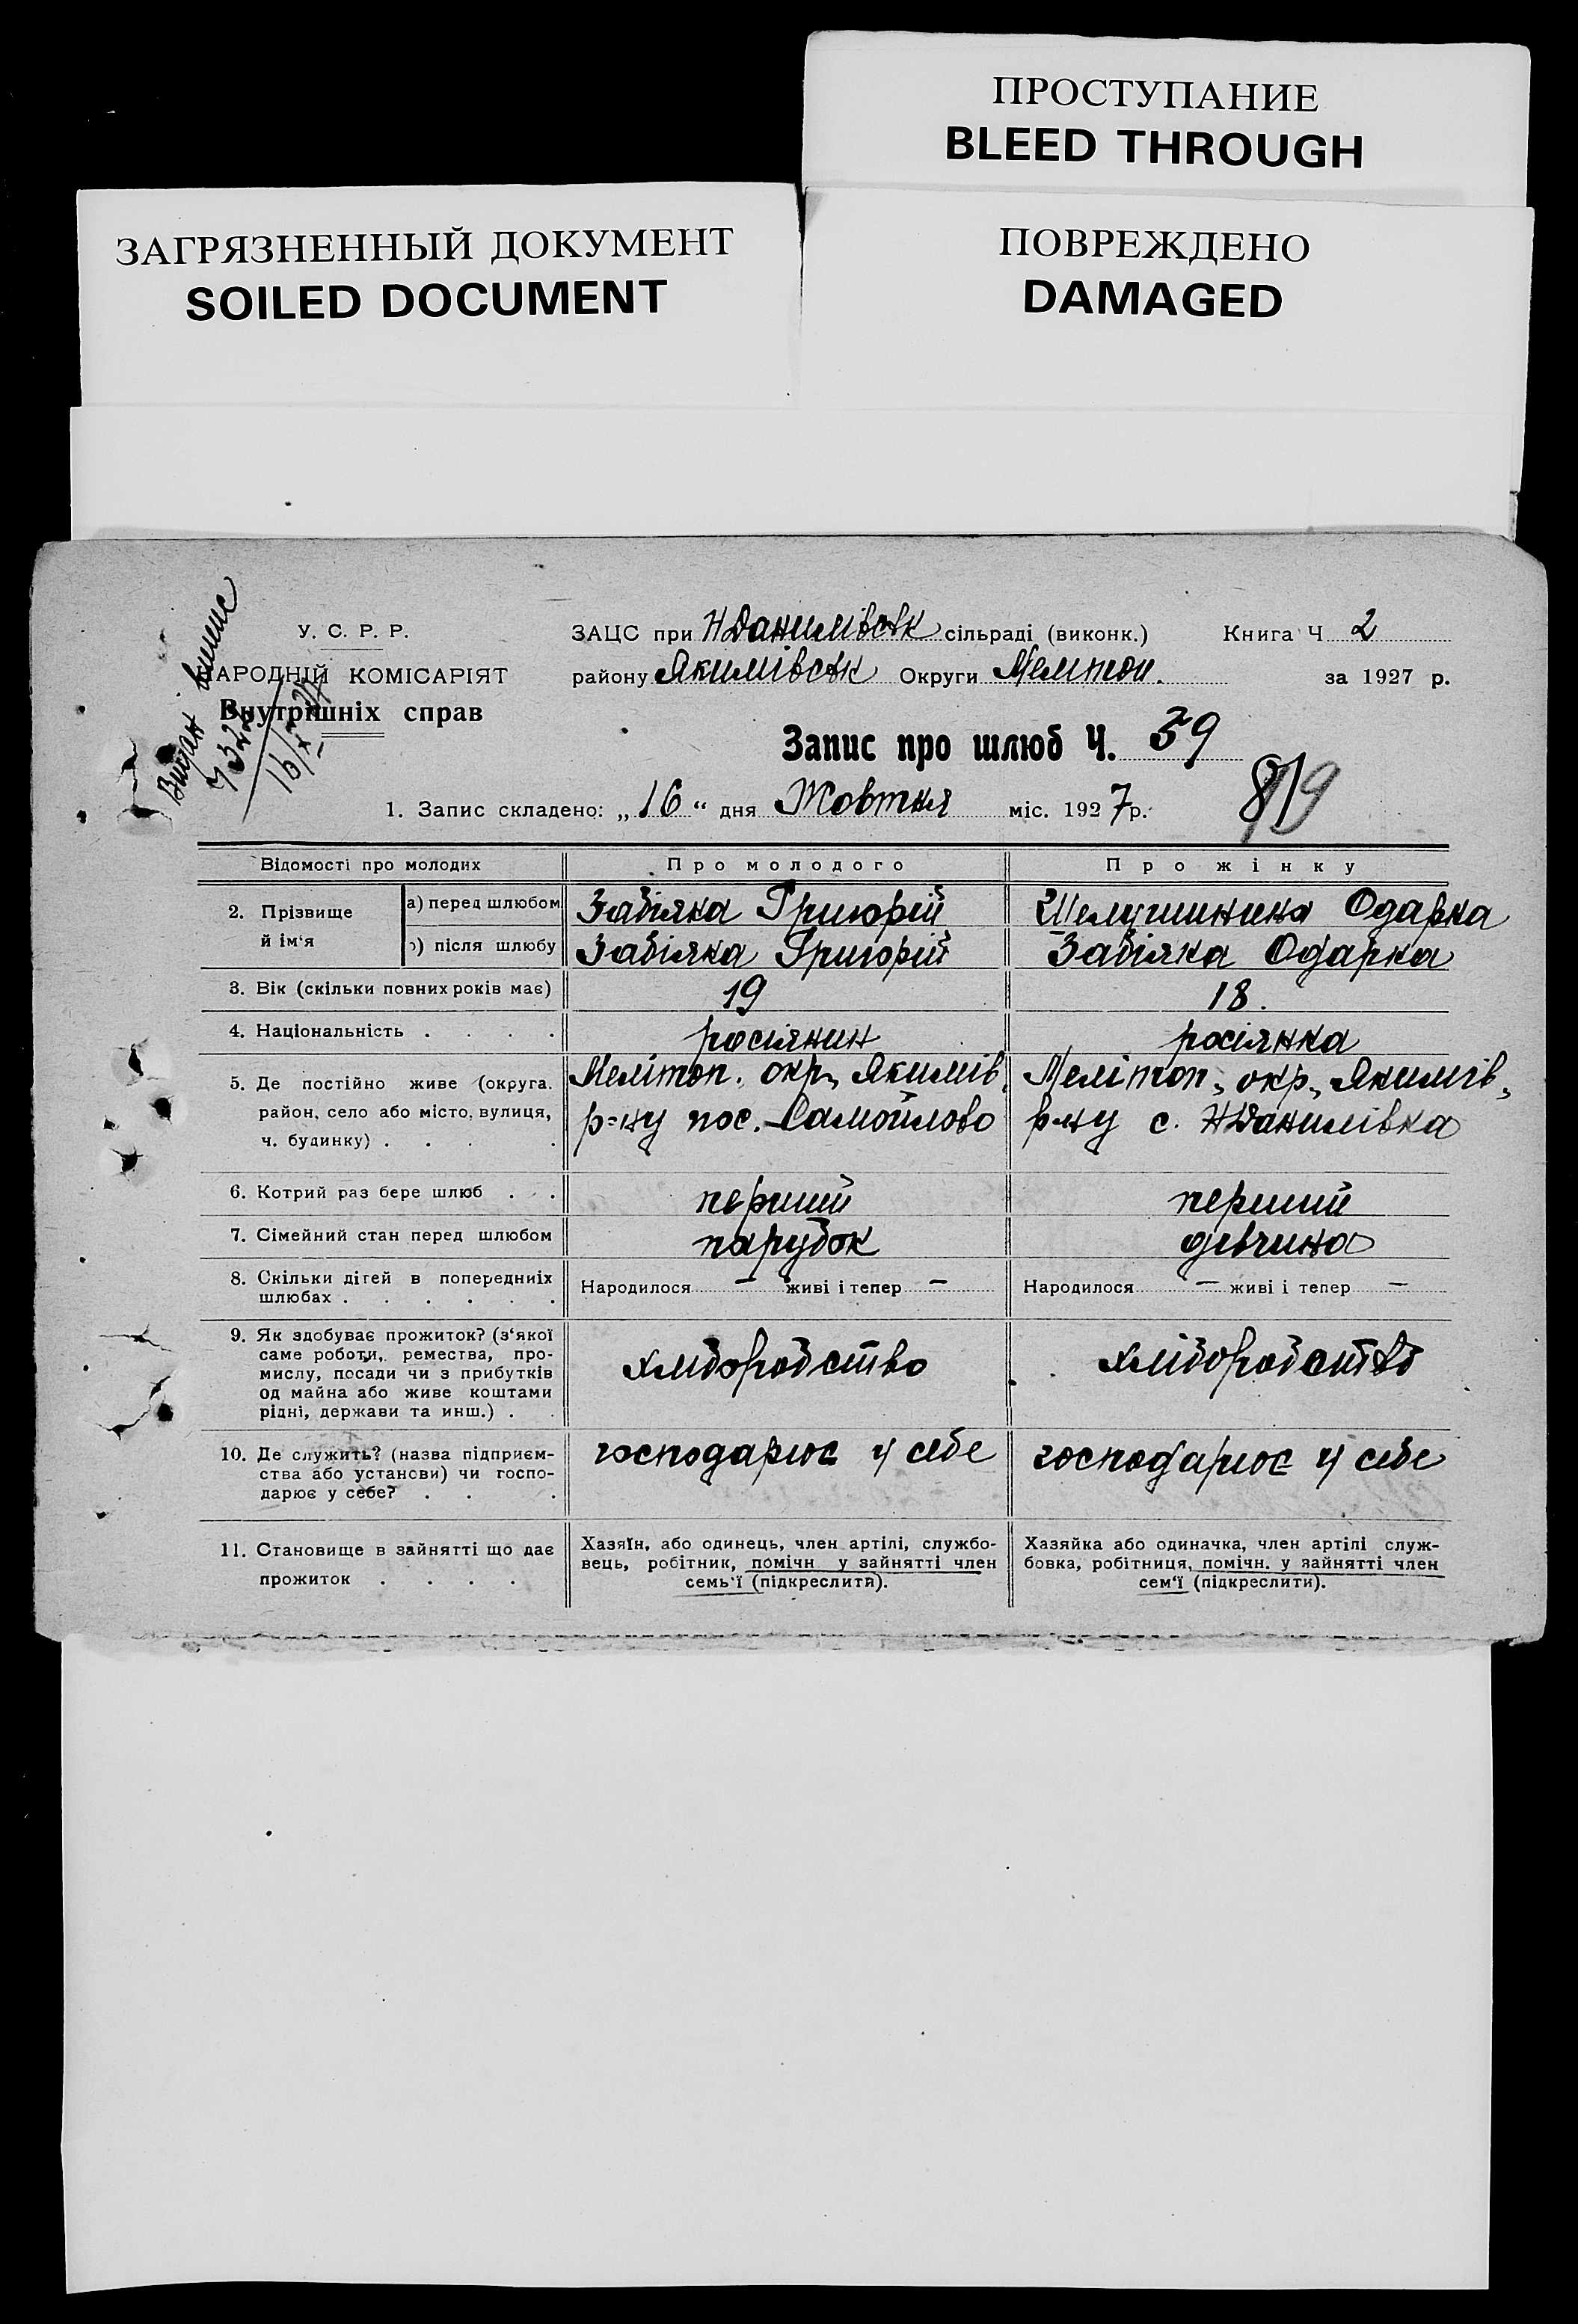 ПРОСТУПАНИЕ
BLEED THROUGH
ЗАГРЯЗНЕННЫЙ ДОКУМЕНТ
SOILED DOCUMENT
ПОВРЕЖДЕНО
DAMAGED
Видан випис
У. С. Р. Р.
НАРОДНІЙ КОМІСАРІЯТ
Внутрішніх справ
ЗАЦС при НДанилівськ сільраді (виконк.) Книга Ч 2
району Якимівськ Округи Мелітоп. за 1927 р.
Запис про шлюб Ч. 39
1. Запис складено: „16“ дня Жовтня міс. 1927 р.
Відомості про молодих Про молодого Про жінку
2. Прізвище й ім‘я
а) перед шлюбом Забіяка Григорій Шелушинина Одарка
б) після шлюбу Забіяка Григорій Забіяка Одарка
3. Вік (скільки повних років має) 19 18.
4. Національність . . . . росіянин росіянка
5. Де постійно живе (округа,
район, село або місто, вулиця,
ч. будинку) . . . .
Мелітоп. окр., Якимів.
р-ну пос. Самойлово
Мелітоп., окр., Якимів.,
р-ну с. НДанилівка
6. Котрий раз бере шлюб . . . перший перший
7. Сімейний стан перед шлюбом парубок дівчина
8. Скільки дітей в попередниіх
шлюбах . . . . . .
Народилося — живі і тепер —
Народилося — живі і тепер —
9. Як здобуває прожиток? (з‘якої
саме роботи, ремества, про-
мислу, посади чи з прибутків
од майна або живе коштами
рідні, держави та инш.) . .
хліборобство
хліборобство
10. Де служить? (назва підприєм-
ства або установи) чи госпо-
дарює у себе? . . .
господарює у себе
господарює у себе
11. Становище в зайнятті що дає
прожиток . . . .
Хазяїн, або одинець, член артілі, службо-
вець, робітник, помічн у зайнятті член
семь‘ї (підкреслити).
Хазяйка або одиначка, член артілі служ-
бовка, робітниця, помічн. у зайнятті член
сем‘ї (підкреслити).